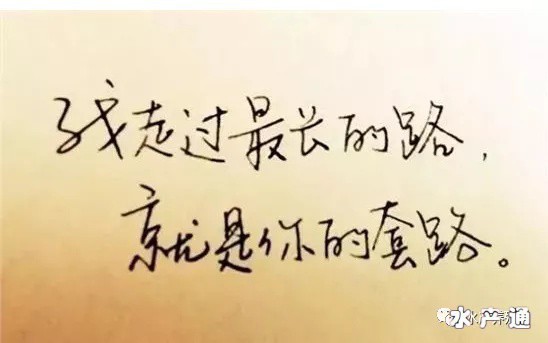 我走过最长的路，
就是你的套路。
水产通